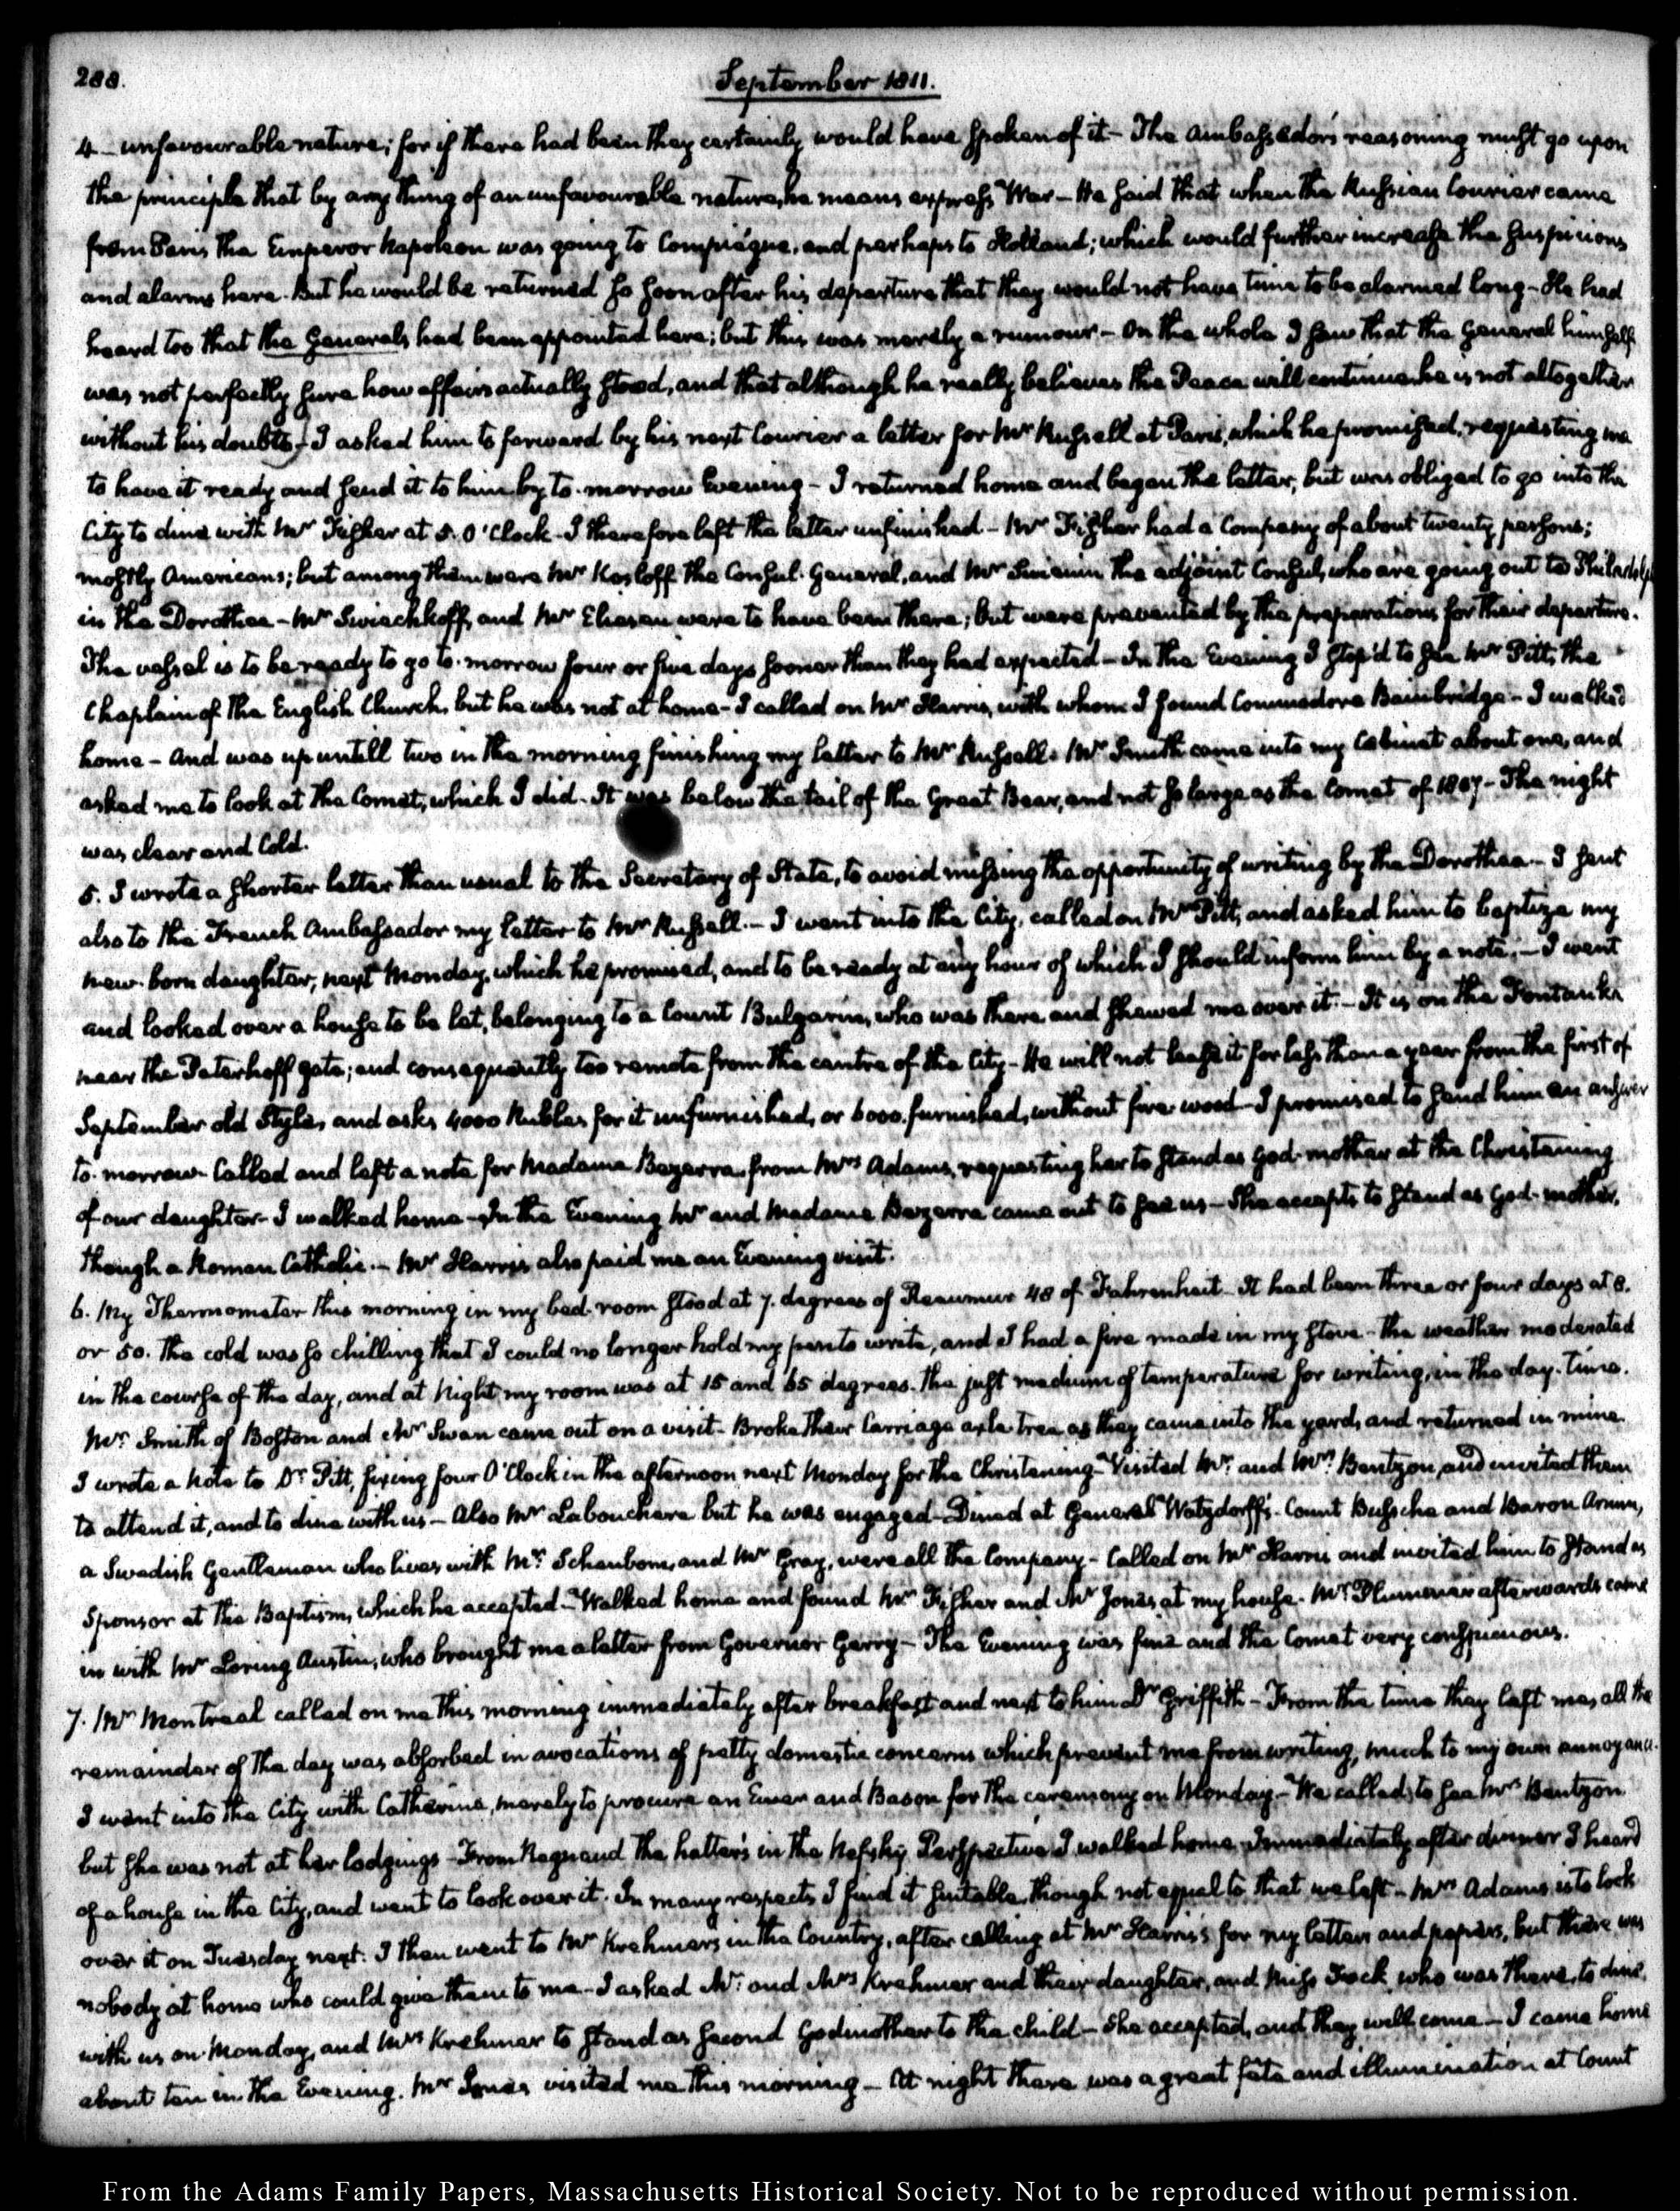 288.
September 1811.
4 — unfavourable nature; for if there had been they certainly would have spoken of it — The Ambassador's reasoning must go upon
the principle that by any thing of an unfavourable nature, he means express War — He said that when the Russian Courier came
from Paris the Emperor Napoleon was going to Compiègne, and perhaps to Holland; which would further increase the suspicions
and alarms here. But he would be returned so soon after his departure that they would not have time to be alarmed long — He had
heard too that the Generals had been appointed here; but this was merely a rumour — On the whole I saw that the General himself
was not perfectly sure how affairs actually stood, and that although he really believes the Peace will continue he is not altogether
without his doubts — I asked him to forward by his next Courier a letter for Mr Russell at Paris, which he promised, requesting me
to have it ready and send it to him by to-morrow Evening — I returned home and began the letter, but was obliged to go into the
City to dine with Mr Fisher at 5. O'Clock — I therefore left the letter unfinished — Mr Fisher had a Company of about twenty persons;
mostly Americans; but among them were Mr Kosloff the Consul-General, and Mr Swinin the adjoint Consul, who are going out to Philadelp
in the Dorothea — Mr Swiechkoff, and Mr Elisen were to have been there; but were prevented by the preparations for their departure.
The vessel is to be ready to go to-morrow four or five days sooner than they had expected — In the Evening I stop'd to see Mr Pitt, the
Chaplain of the English Church, but he was not at home — I called on Mr Harris, with whom I found Commodore Bainbridge — I walked
home — And was up untill two in the morning finishing my letter to Mr Russell. Mr Smith came into my Cabinet about one, and
asked me to look at the Comet, which I did. It was below the tail of the Great Bear, and not so large as the Comet of 1807 — The night
was clear and Cold.
5. I wrote a shorter letter than usual to the Secretary of State, to avoid missing the opportunity of writing by the Dorothea — I sent
also to the French Ambassador my letter to Mr Russell. — I went into the City, called on Mr Pitt, and asked him to baptize my
new-born daughter, next Monday, which he promised, and to be ready at any hour of which I should inform him by a note. — I went
and looked over a house to be let, belonging to a Count Bulgarin, who was there and shewed me over it. — It is on the Fontanka
near the Peterhoff gate; and consequently too remote from the centre of the City — He will not lease it for less than a year from the first of
September old Style, and asks 4000 Rubles for it unfurnished, or 6000. furnished, without fire-wood — I promised to send him an answer
to-morrow. Called and left a note for Madame Bezerra from Mrs Adams, requesting her to stand as God-mother at the Christening
of our daughter — I walked home — In the Evening Mr and Madame Bezerra came out to see us — She accepts to stand as God-mother,
though a Roman Catholic. — Mr Harris also paid me an Evening visit.
6. My Thermometer this morning in my bed-room stood at 7. degrees of Reaumur 48 of Fahrenheit — It had been three or four days at 8.
or 50. The cold was so chilling that I could no longer hold my pen to write, and I had a fire made in my stove — The weather moderated
in the course of the day, and at Night my room was at 15 and 65 degrees. The just medium of temperature for writing, in the day-time.
Mr Smith of Boston and Mr Swan came out on a visit — Broke their Carriage axle-tree as they came into the yard, and returned in mine.
I wrote a Note to Dr Pitt, fixing four O'Clock in the afternoon next Monday for the Christening — Visited Mr and Mrs Bentzon, and invited them
to attend it, and to dine with us — Also Mr Labouchere but he was engaged — Dined at General Watzdorff's. Count Bussche and Baron Armin,
a Swedish Gentleman who lives with Mr Schenbom, and Mr Gray, were all the Company — Called on Mr Harris and invited him to stand as
Sponsor at the Baptism, which he accepted — Walked home and found Mr Fisher and Mr Jones at my house. Mr Plummer afterwards came
in with Mr Loring Austin, who brought me a letter from Governor Gerry — The Evening was fine and the Comet very conspicuous.
7. Mr Montreal called on me this morning immediately after breakfast and next to him Dr Griffith — From the time they left me, all the
remainder of the day was absorbed in avocations of petty domestic concerns which prevent me from writing, much to my own annoyance.
I went into the City with Catherine, merely to procure an Ewer and Bason for the ceremony on Monday. — We called to see Mrs Bentzon
but she was not at her lodgings — From the hatter's in the Nefsky Perspective I walked home. Immediately after dinner I heard
of a house in the City, and went to look over it. In many respects I find it suitable, though not equal to that we left — Mrs Adams is to look
over it on Tuesday next. I then went to Mr Krehmer's in the Country, after calling at Mr Harris's for my letters and papers, but there was
nobody at home who could give them to me — I asked Mr and Mrs Krehmer and their daughter, and Miss Fock, who was there, to dine
with us on Monday, and Mrs Krehmer to stand as second Godmother to the child — She accepted, and they will come — I came home
about ten in the Evening. Mr Jones visited me this morning — At night there was a great fête and illumination at Count
From the Adams Family Papers, Massachusetts Historical Society. Not to be reproduced without permission.